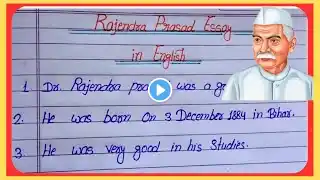 Rajendra Prasad Essay
in English
1. Dr. Rajendra pra was a g
2. He was born on 3 December 1884 in Bihar.
3. He was very good in his studies.